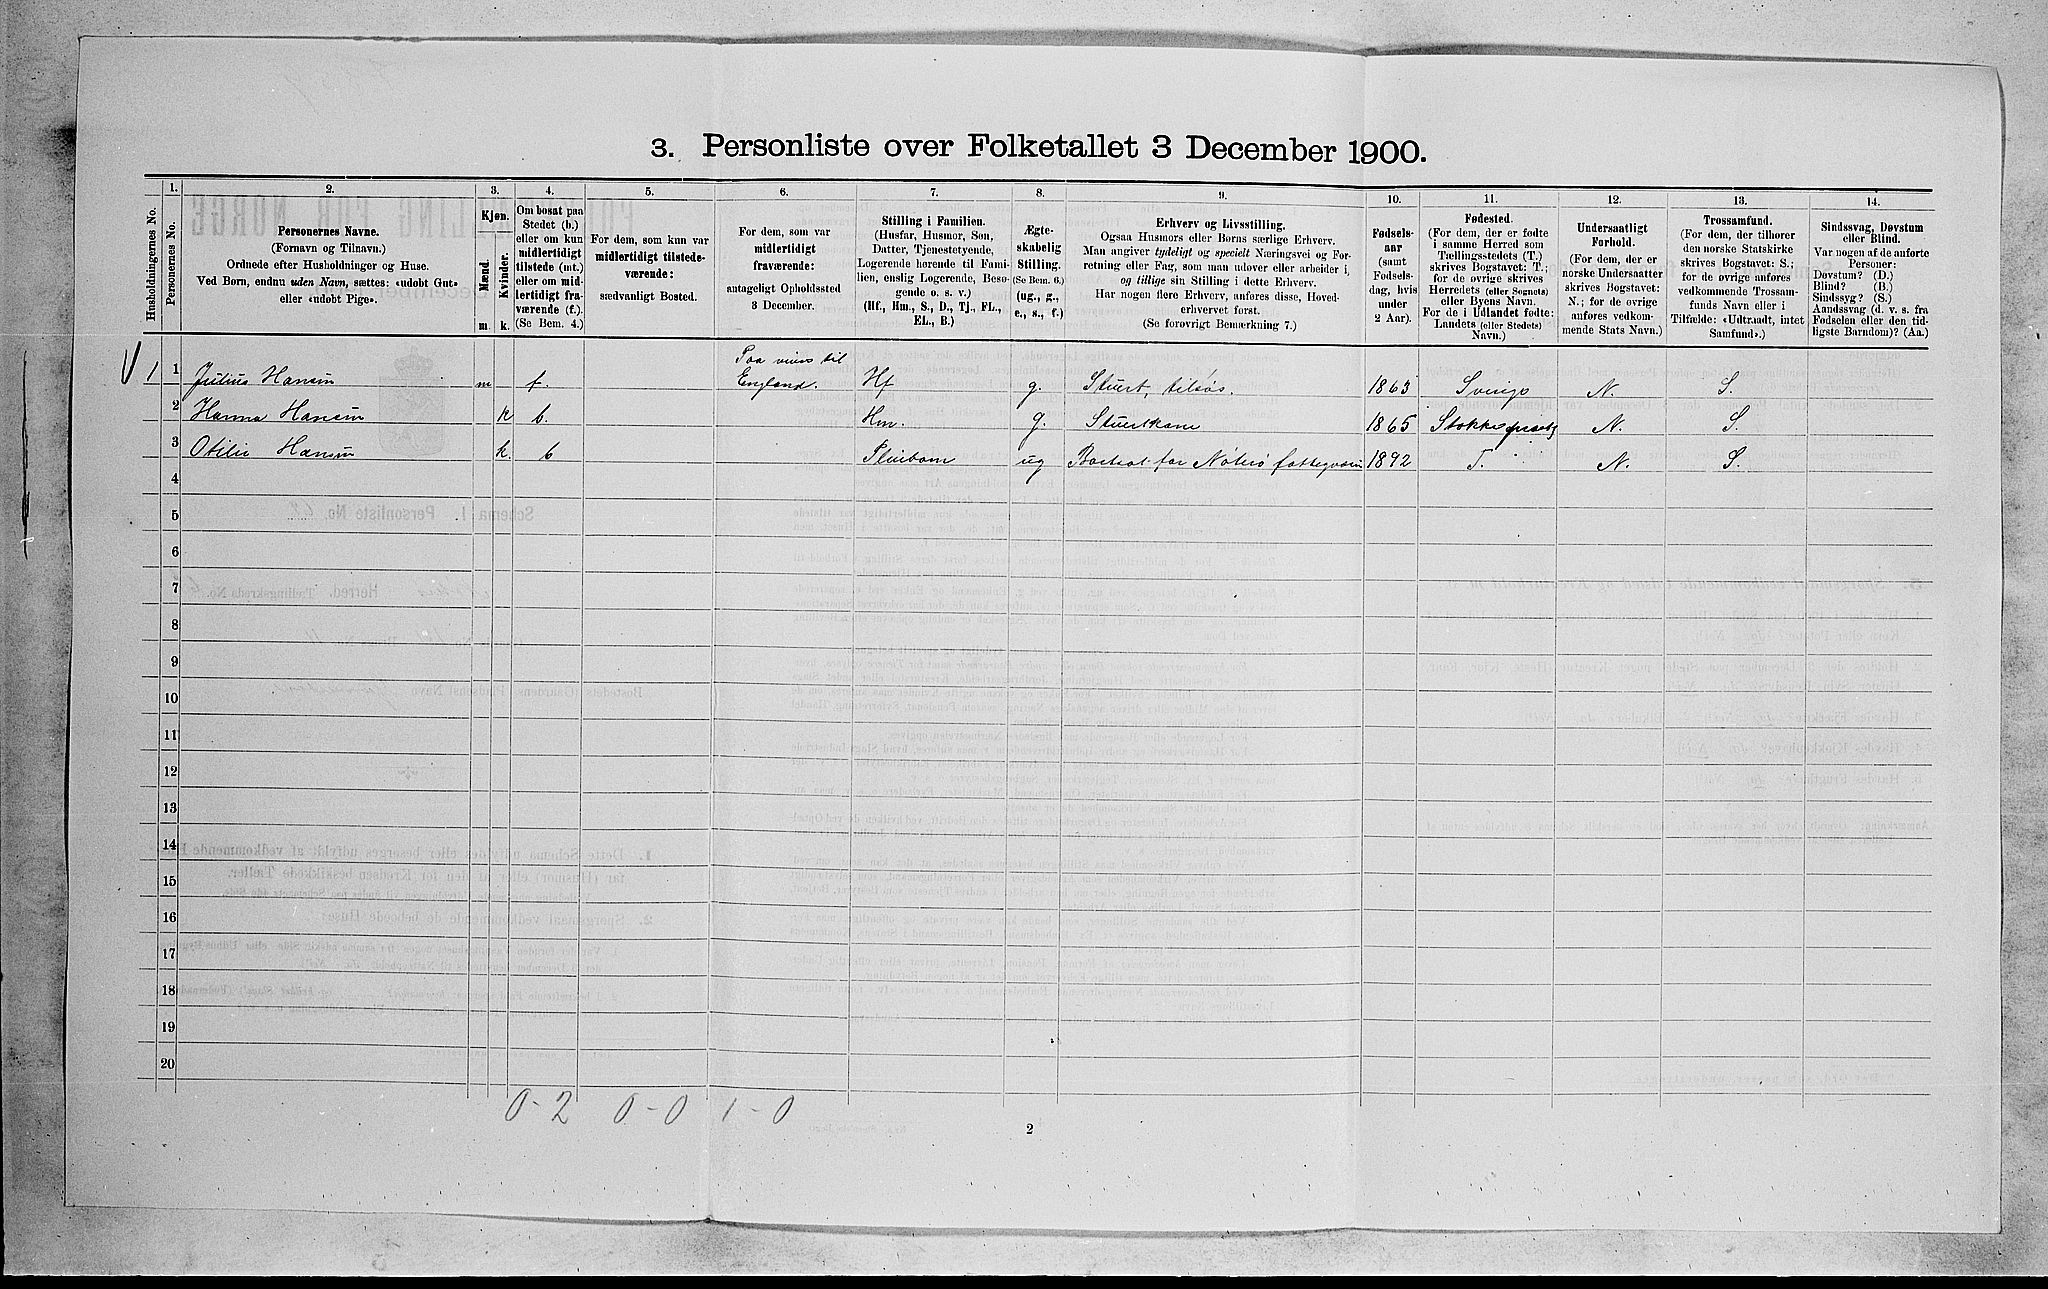 3. Personliste over Folketallet 3 December 1900.
Husholdningernes No.
1.
Personernes No.
2.
Personernes Navne.
(Fornavn og Tilnavn.)
Ordnede efter Husholdninger og Huse.
Ved Børn, endnu uden Navn, sættes: «udøbt Gut»
eller «udøbt Pige».
3.
Kjøn.
Mænd.
Kvinder.
m.
k.
4.
Om bosat paa
Stedet (b.)
eller om kun
midlertidigt
tilstede (mt.)
eller om mid-
lertidigt fra-
værende (f.).
(Se Bem. 4.)
5.
For dem, som kun var
midlertidigt tilstede-
værende:
sædvanligt Bosted.
6.
For dem, som var
midlertidigt
fraværende:
antageligt Opholdssted
3 December.
7.
Stilling i Familien.
(Husfar, Husmor, Søn,
Datter, Tjenestetyende,
Logerende hørende til Fami-
lien, enslig Logerende, Besø-
gende o. s. v.)
(Hf., Hm., S., D., Tj., FL.,
EL., B.)
8.
Ægte-
skabelig
Stilling.
(Se Bem. 6.)
(ug., g.,
e., s., f.)
9.
Erhverv og Livsstilling.
Ogsaa Husmors eller Børns særlige Erhverv.
Man angiver tydeligt og specielt Næringsvei og For-
retning eller Fag, som man udover eller arbeider i,
og tillige sin Stilling i dette Erhverv.
Har nogen flere Erhverv, anføres disse, Hoved-
erhvervet først.
(Se forøvrigt Bemærkning 7.)
10.
Fødsels-
aar
(samt
Fødsels-
dag, hvis
under
2 Aar).
11.
Fødested.
(For dem, der er fødte
i samme Herred som
Tællingsstedets (T.)
skrives Bogstavet: T.;
for de øvrige skrives
Herredets (eller Sognets)
eller Byens Navn.
For de i Udlandet fødte:
Landets (eller Stedets)
Navn.)
12.
Undersaatligt
Forhold.
(For dem, der er
norske Undersaatter
skrives Bogstavet:
N.; for de øvrige
anføres vedkom-
mende Stats Navn.)
13.
Trossamfund.
(For dem, der tilhører
den norske Statskirke
skrives Bogstavet: S.;
for de øvrige anføres
vedkommende Trossam-
funds Navn eller i
Tilfælde: «Udtraadt, intet
Samfund».)
14.
Sindssvag, Døvstum
eller Blind.
Var nogen af de anførte
Personer:
Døvstum? (D.)
Blind? (B.)
Sindssyg? (S.)
Aandssvag (d. v. s. fra
Fødselen eller den tid-
ligste Barndom)? (Aa.)
V 1 1 Julius Hansen m f. Paa reise til
England. Hf g. Stuert, tilsøs. 1863 Sverige N. S.
2 Hanna Hansen k b. Hm. g. Stuertkone 1865 Stokke N. S.
3 Otilie Hansen k. b Pleiebarn ug Bortsat for Nøterø fattigvæsen 1892 T. N. S.
4
5
6
7
8
9
10
11
12
13
14
15
16
17
18
19
20
0-2 0-0 1-0
2